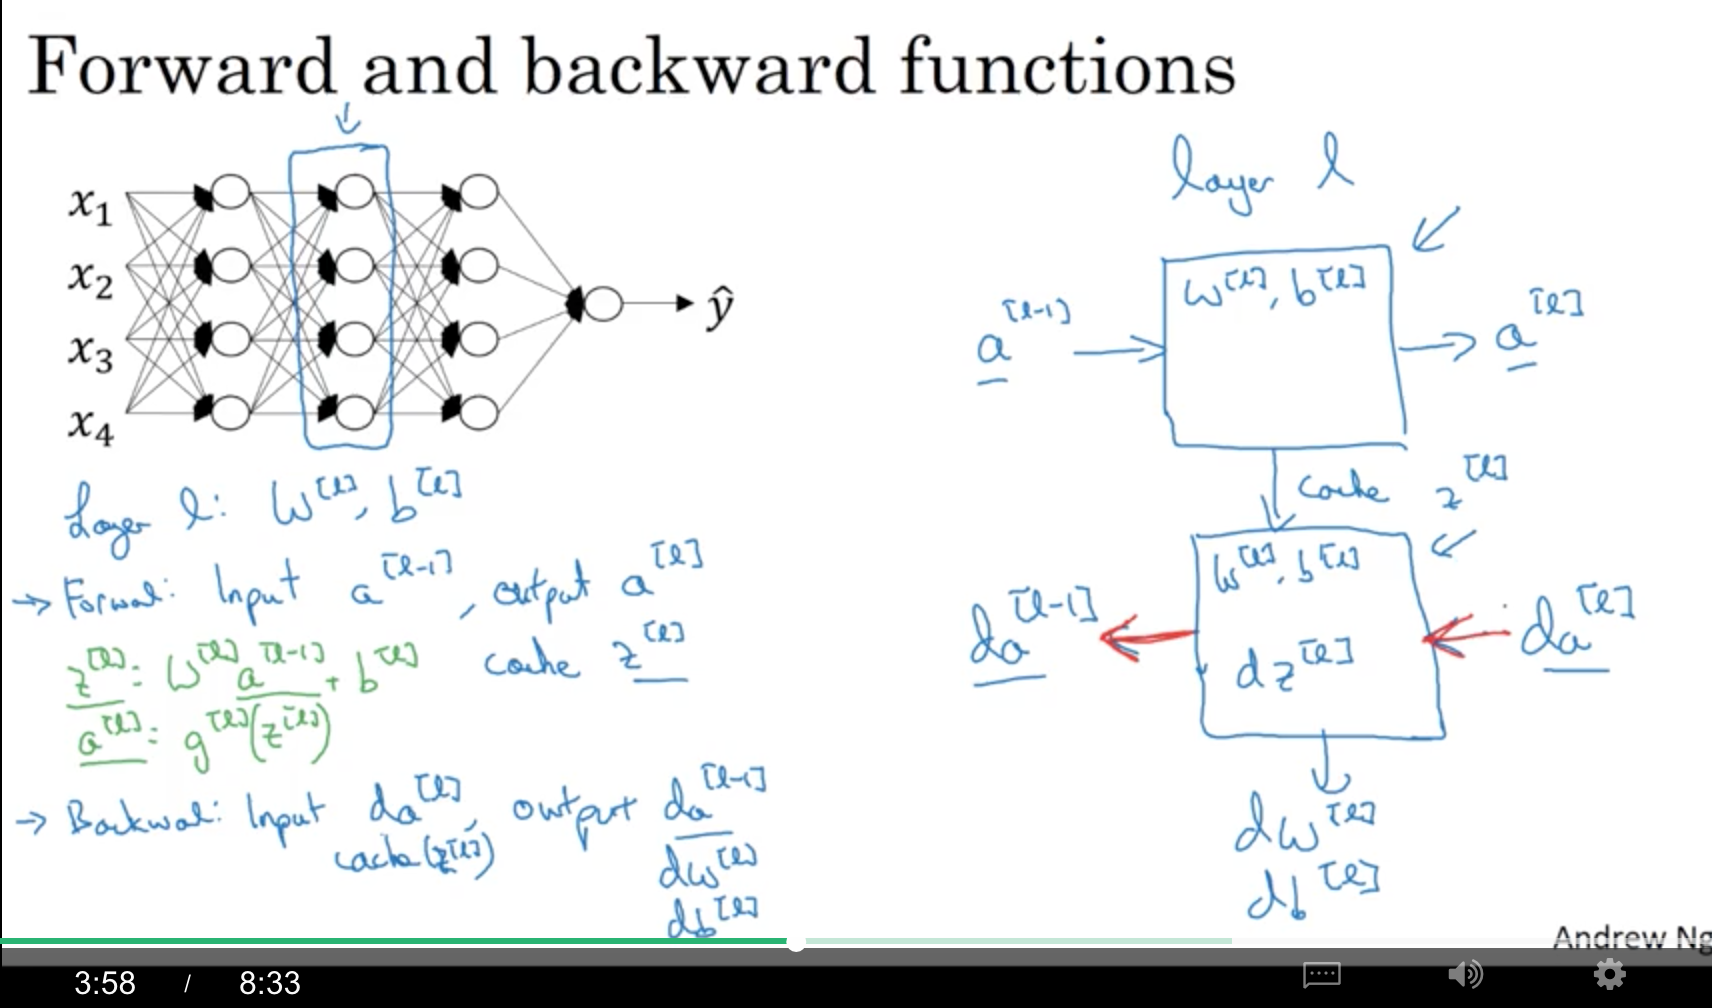 Forward and backward functions
x₁
x₂
x₃
x₄
ŷ
Layer l: W^[l], b^[l]
→ Forward: Input a^[l-1], output a^[l]
cache z^[l]
z^[l] = W^[l] a^[l-1] + b^[l]
a^[l] = g^[l](z^[l])
→ Backward: Input da^[l], output da^[l-1]
cache (z^[l])
dW^[l]
db^[l]
layer l
W^[l], b^[l]
a^[l-1]
a^[l]
cache z^[l]
W^[l], b^[l]
da^[l-1]
dz^[l]
da^[l]
dW^[l]
db^[l]
Andrew Ng
3:58 / 8:33